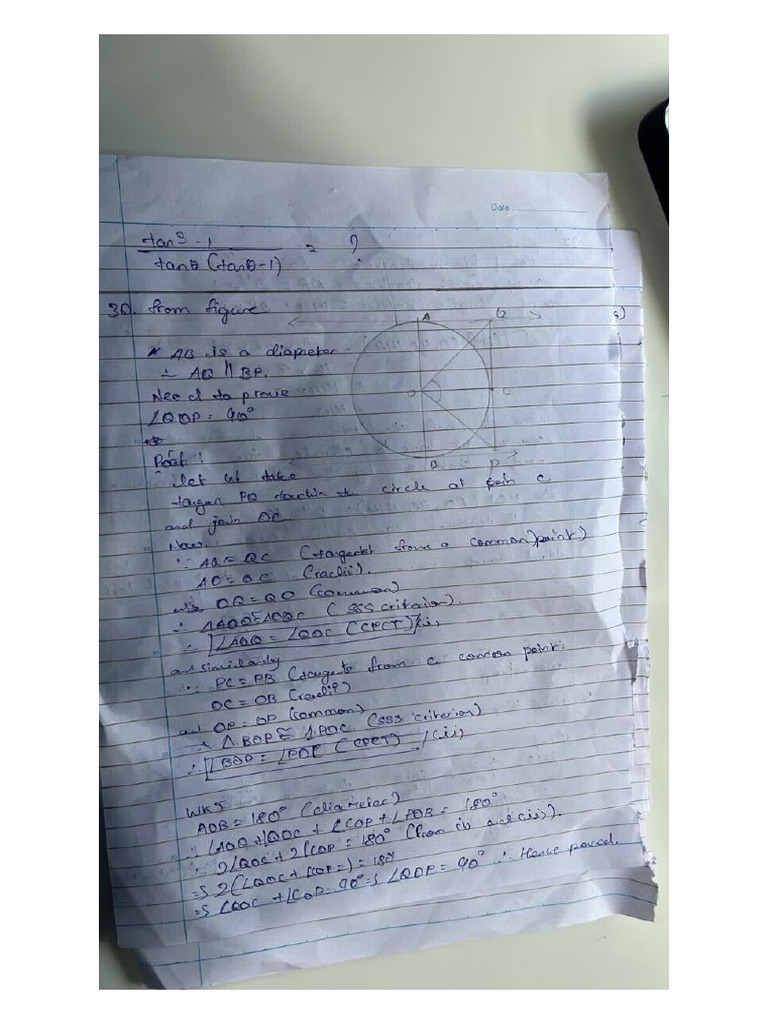 Date
tan³ - 1
tanθ (tanθ-1)
= ?
30. from figure
AB is a diameter
∴ AQ || BP.
Need to prove
∠QOP = 90°
Poof:
let us take
tangen PQ touchin to circle at poin c
and join OC
Now,
∵ AQ = QC (tangents from a common point)
AO = OC (radii).
OQ = QO (common)
∴ ΔAQO ≅ ΔOQC (SSS criteraion).
∴ ∠AOQ = ∠QOC (CPCT)
and similarly
∵ PC = PB (tangents from a common point.
OC = OB (radii)
and OP = OP (common)
∴ ΔBOP ≅ ΔPOC (SSS criterion)
∴ ∠BOP = ∠POC (CPCT)
WKT
AOB = 180° (diameter)
∴ ∠AOQ + ∠QOC + ∠COP + ∠POB = 180°
∴ 2∠QOC + 2∠COP = 180° (from (i) and (ii)).
⇒ 2(∠QOC + ∠COP) = 180°
⇒ ∠QOC + ∠COP = 90° ⇒ ∠QOP = 90° ∴ Hence proved.
A
Q
O
C
B
P